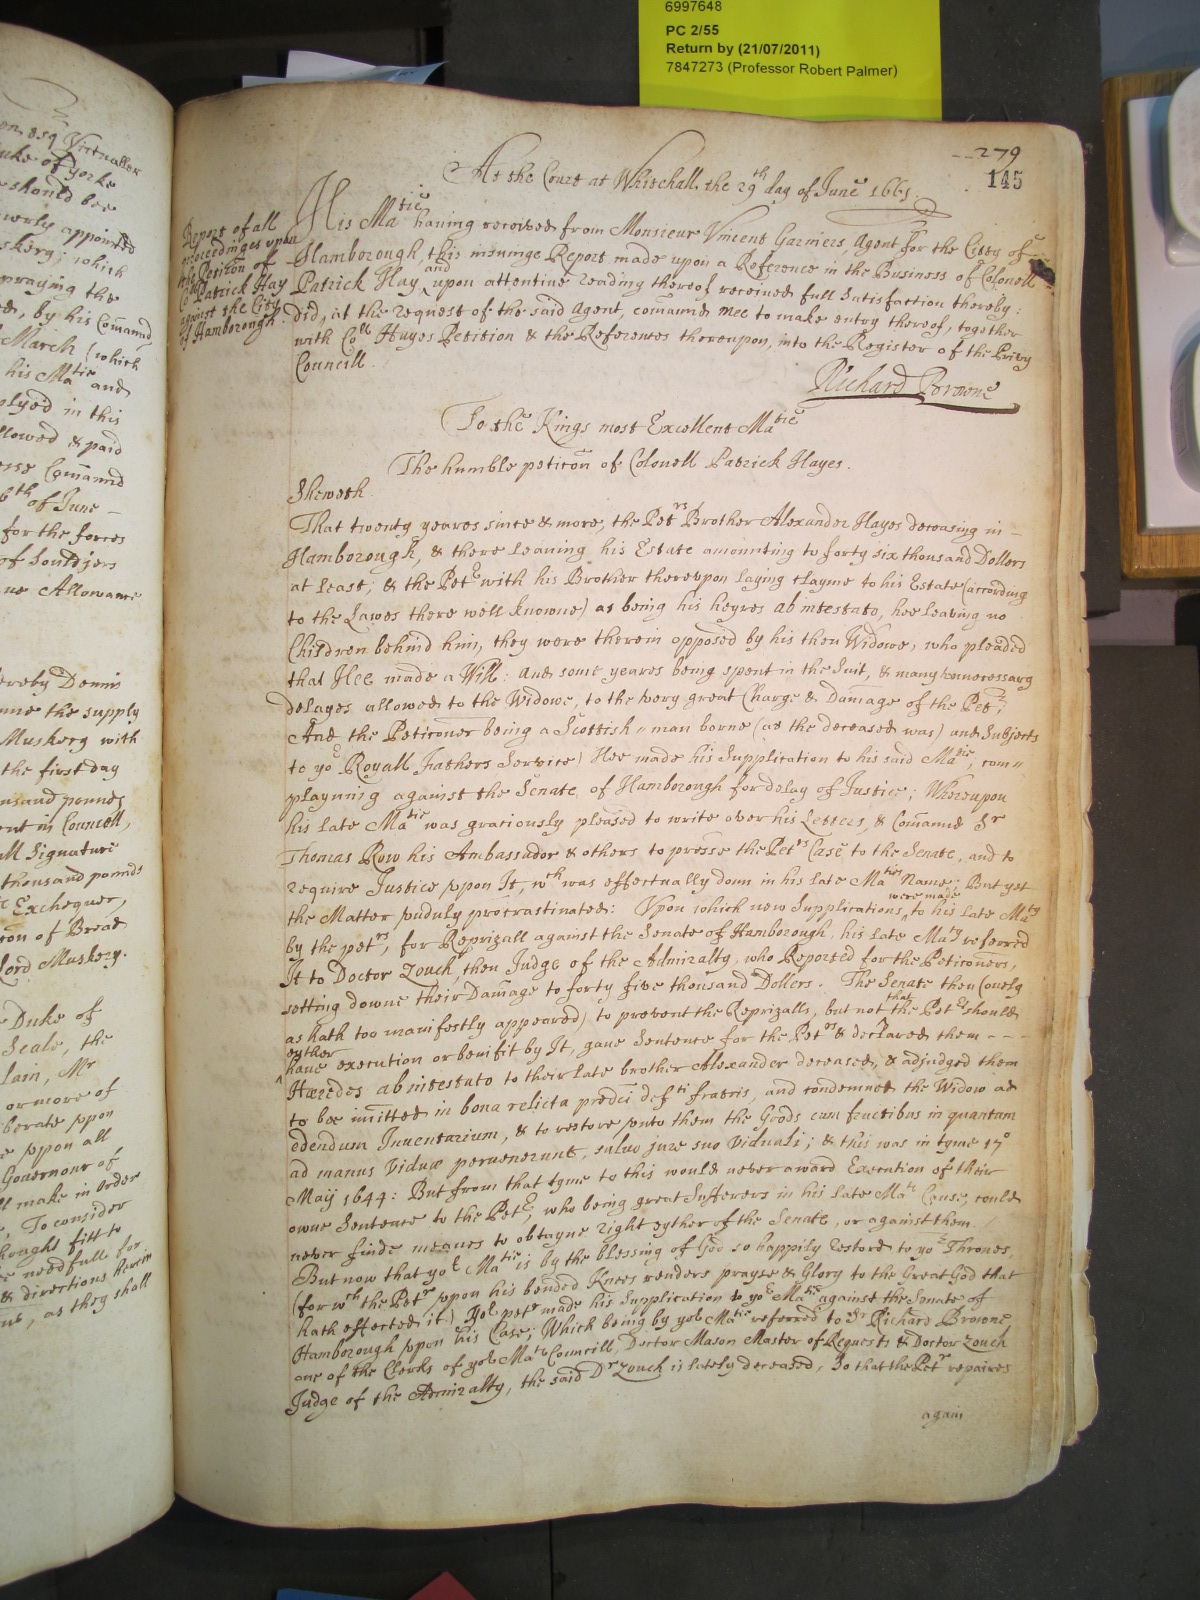 6997648
PC 2/55
Return by (21/07/2011)
7847273 (Professor Robert Palmer)
on, Esq Victualler
Duke of Yorke
should bee
newly appointed
skery; which
praying the
by his Comand
March (which
his Matie and
ployed in this
llowed & paid
Comannd
6th of June -
for the forces
of Souldjers
ue Allowance
ereby Dennis
the supply
Muskery with
the first day
ousand pounds
ent in Councell,
Signature
thousand pounds
Exchequer,
of Bread
Lord Muskery.
Duke of
Seale, the
lain, Mr
or more of
berate vpon
vpon all
Governour of
ll make in order
To consider
thought fitt to
needfull for
& directions herein
as they shall
279
145
At the Court at Whitehall the 29th day of June 1661.
Report of all
proceedinges upon
the Petition of
Coll Patrick Hay
against the City
of Hamborough.
His Matie having received from Monsieur Vincent Garmers, Agent for the Citty of
Hamborough, this insuinge Report made upon a Reference in the Business of Colonell
Patrick Hay, and upon attentive reading thereof received full Satisfaction thereby:
did, at the request of the said Agent, comannd mee to make entry thereof, together
with Coll Hayes Petition & the References thereupon, into the Register of the Privy
Councill.
Richard Browne
To the Kings most Excellent Matie
The humble peticon of Colonell Patrick Hayes.
Sheweth.
That twenty yeares since & more, the Petrs Brother Alexander Hayes deceasing in -
Hamborough, & there leaving his Estate amounting to forty six thousand Dollers
at least; & the Petr with his Brother thereupon laying clayme to his Estate (according
to the Lawes there well knowne) as being his heyres ab intestato, hee leaving no
Children behind him, they were therein opposed by his then Widowe, who pleaded
that Hee made a Will: and some yeares being spent in the Suit, & many unnecessary
delayes allowed to the Widowe, to the very great Charge & Damage of the Petr;
And the Peticoner being a Scottish-man borne (as the deceased was) and Subjects
to yor Royall Fathers Service) Hee made his Supplication to his said Matie, com=
playning against the Senate of Hamborough for delay of Justice; Whereupon
his late Matie was graciously pleased to write over his Letters, & Comannd Sr
Thomas Row his Ambassador & others to presse the Petrs Case to the Senate, and to
require Justice vpon It, wch was effectually donn in his late Maties Name; But yet
the Matter vnduly protrastinated: Vpon which new Supplications were made to his late Maty
by the petrs, for Reprizall against the Senate of Hamborough, his late Maty referred
It to Doctor Zouch, then Judge of the Admiralty, who Reported for the Peticoners,
setting downe their Damage to forty five thousand Dollers. The Senate then (onely
as hath too manifestly appeared) to prevent the Reprizalls, but not that the Petrs should
eyther have execution or benifit by It, gave Sentence for the Petrs & declared them - - -
Hæredes ab intestato to their late brother Alexander deceased, & adjudged them
to bee imitted in bona relicta predci defti fratris, and condemned the Widow ad
edendum Inventarium, & to restore vnto them the Goods cum fructibus in quantum
ad manus Viduæ pervenerunt, salvo jure suo Viduali; & this was in tyme 17o
Maij 1644: But from that tyme to this would never award Execution of their
owne Sentence to the Petr, who being great Sufferers in his late Mats Cause, could
never finde meanes to obtayne right eyther of the Senate, or against them.
But now that yor Matie is by the blessing of God so happily restord to yor Thrones,
(for wch the Petr vpon his bended Knees renders prayse & Glory to the Great God that
hath effected it.) Yor petr made his Supplication to yor Matie against the Senate of
Hamborough vpon his Case; Which being by yor Matie referred to Sr Richard Browne
one of the Clerks of yor Mats Councill, Doctor Mason Master of Requests & Doctor Zouch
Judge of the Admiralty, the said Dr Zouch is lately deceased, So that the Petr repaires
again